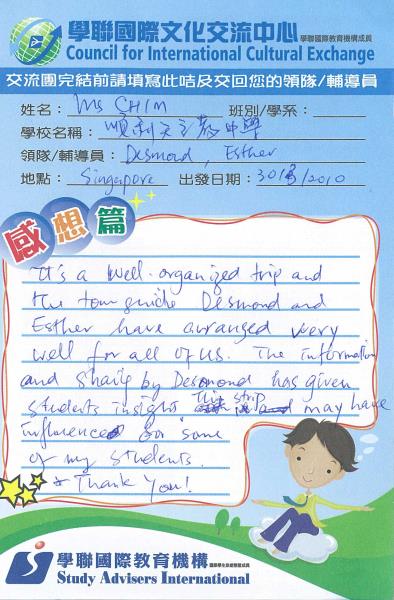 學聯國際文化交流中心 學聯國際教育機構成員
Council for International Cultural Exchange
交流團完結前請填寫此咭及交回您的領隊/輔導員
姓名： Ms CHIM 班別/學系：
學校名稱： 順利天主教中學
領隊/輔導員： Desmond, Esther
地點： Singapore 出發日期： 30/3/2010
感想篇
It's a well-organized trip and
the tour guide Desmond and
Esther have arranged very
well for all of us. The information
and sharing by Desmond has given
students insight This trip and may have
influence on some
of my students.
Thank You!
學聯國際教育機構
Study Advisers International